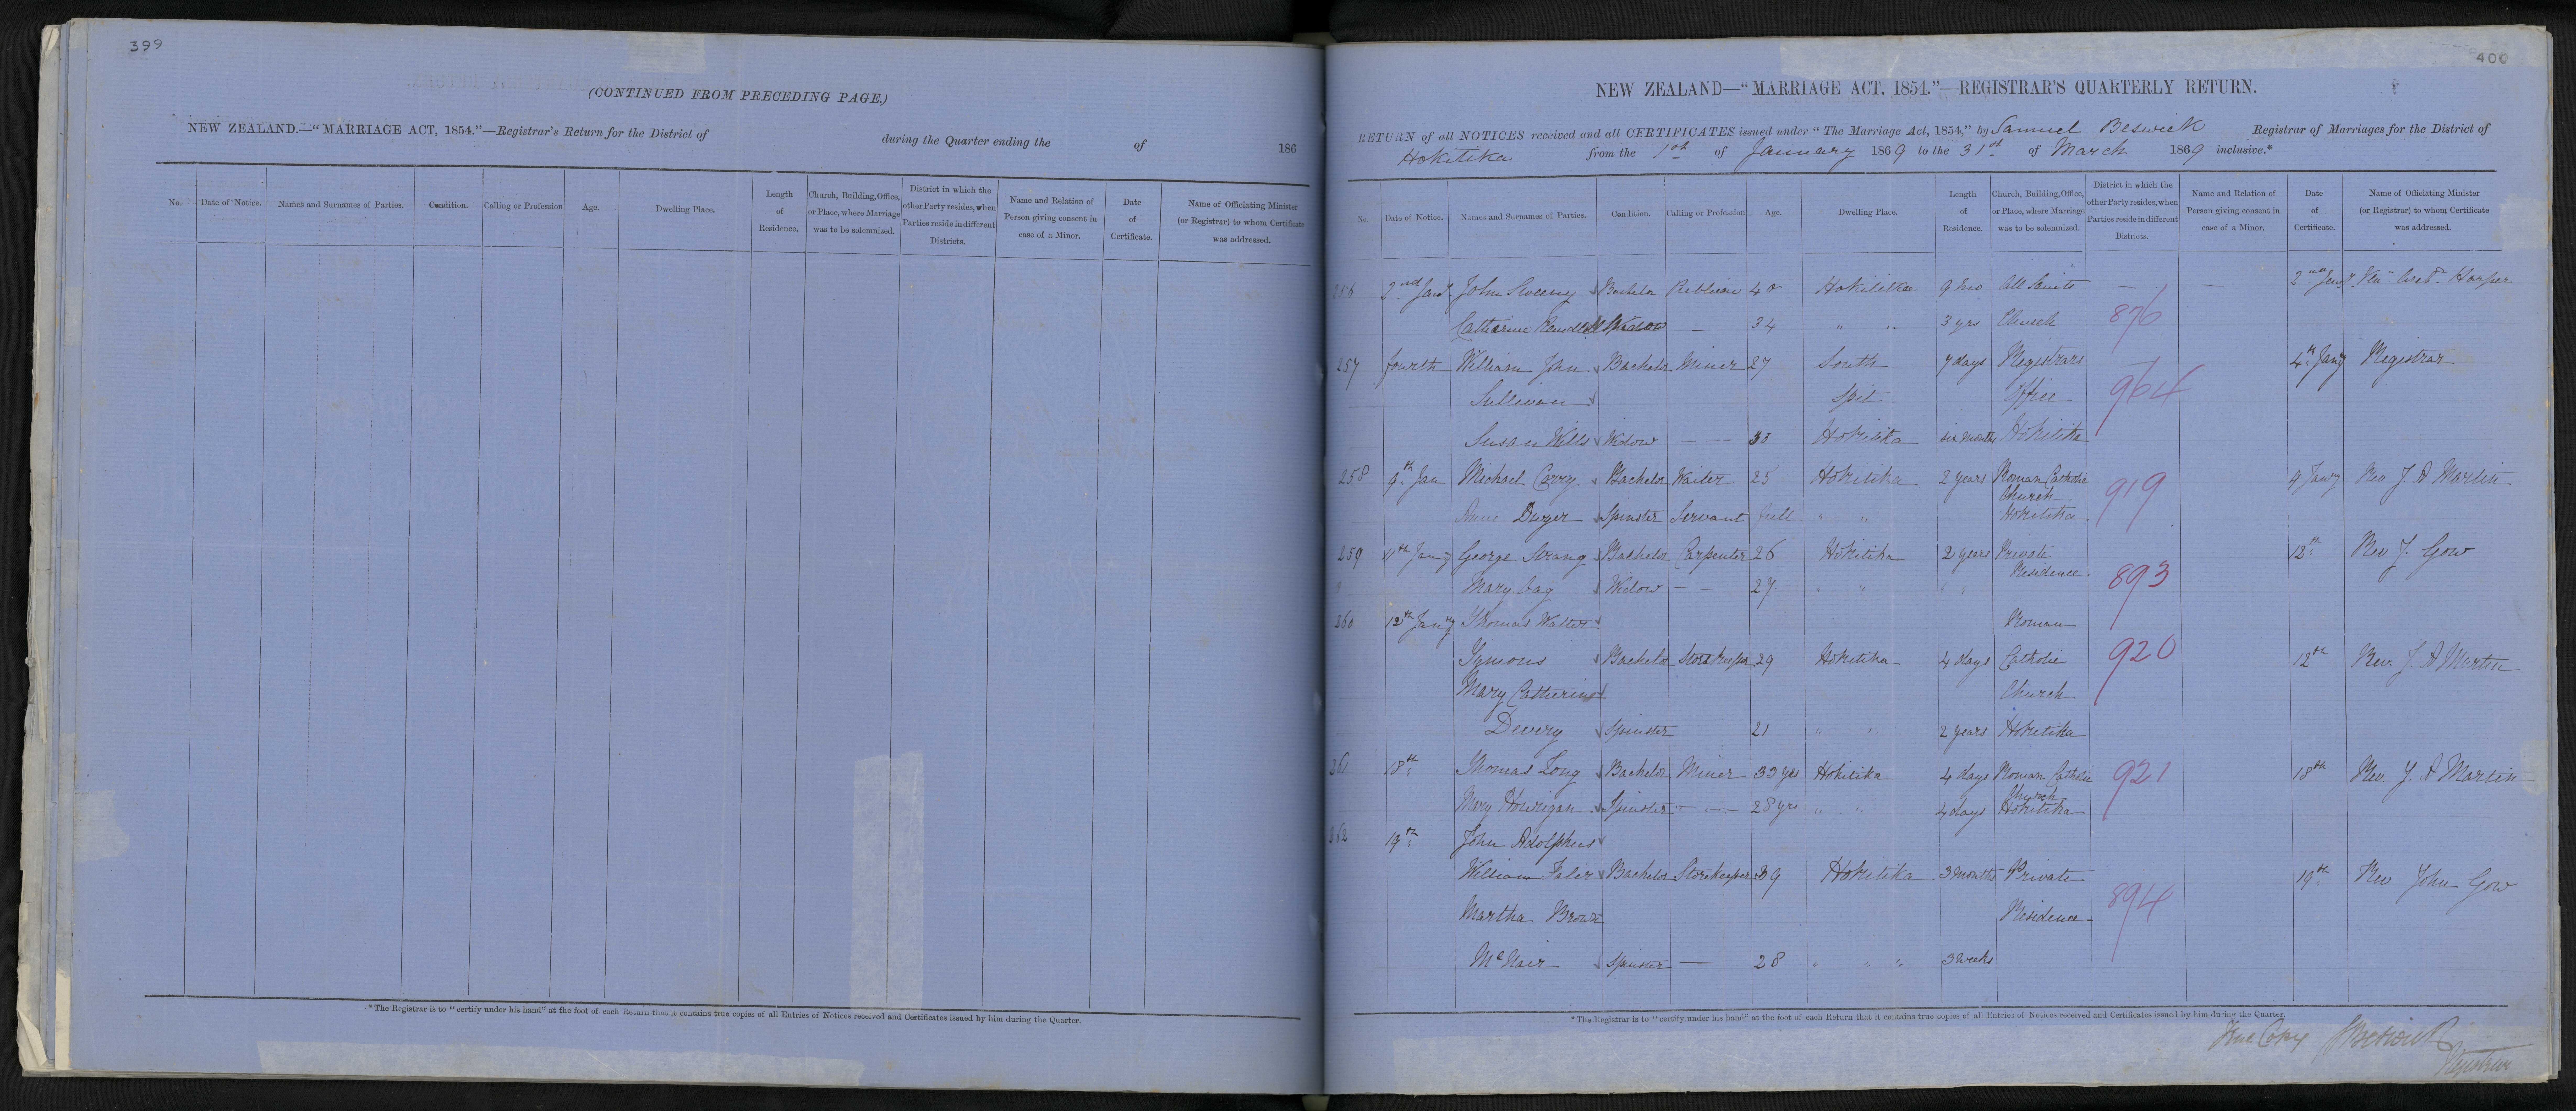 399
(CONTINUED FROM PRECEDING PAGE.)
NEW ZEALAND.—"MARRIAGE ACT, 1854."—Registrar's Return for the District of during the Quarter ending the of 186
No. Date of Notice. Names and Surnames of Parties. Condition. Calling or Profession Age. Dwelling Place. Length of Residence. Church, Building, Office, or Place, where Marriage was to be solemnized. District in which the other Party resides, when Parties reside in different Districts. Name and Relation of Person giving consent in case of a Minor. Date of Certificate. Name of Officiating Minister (or Registrar) to whom Certificate was addressed.
* The Registrar is to "certify under his hand" at the foot of each Return that it contains true copies of all Entries of Notices received and Certificates issued by him during the Quarter.
400
NEW ZEALAND—"MARRIAGE ACT, 1854."—REGISTRAR'S QUARTERLY RETURN.
RETURN of all NOTICES received and all CERTIFICATES issued under "The Marriage Act, 1854," by Samuel Beswick Registrar of Marriages for the District of
Hokitika from the 1st of January 1869 to the 31st of March 1869 inclusive.*
No. Date of Notice. Names and Surnames of Parties. Condition. Calling or Profession Age. Dwelling Place. Length of Residence. Church, Building, Office, or Place, where Marriage was to be solemnized. District in which the other Party resides, when Parties reside in different Districts. Name and Relation of Person giving consent in case of a Minor. Date of Certificate. Name of Officiating Minister (or Registrar) to whom Certificate was addressed.
256 2nd Jany John Sweeny Bachelor Publican 40 Hokitika 9 mo All Saints — — 2nd Jany Ven Arcd. Harper
Catherine Spinster — 34 " " 3 yrs Church 876
257 fourth William John Bachelor Miner 27 South 7 days Registrars — 4th Jany Registrar
Sullivan Spit Office 964
Susan Wills Widow — — 33 Hokitika six months Hokitika
258 9th Jan Michael Carry Bachelor Waiter 25 Hokitika 2 years Roman Catholic 9 Jany Rev J A Martin
Church 919
Anne Dwyer Spinster Servant full " " Hokitika
259 11th Jany George Strang Bachelor Carpenter 26 Hokitika 2 years Private 12th Rev J. Gow
Residence 893
Mary Cag Widow — — 27 " " " "
260 12th Jany Thomas Walter Roman
Symons Bachelor Storekeeper 29 Hokitika 4 days Catholic 920 12th Rev. J. A Martin
Mary Catherine Church
Devery Spinster 21 " " 2 years Hokitika
261 18th Thomas Long Bachelor Miner 33 yrs Hokitika 4 days Roman Catholic 921 18th Rev. J. A Martin
Church
Mary Hourigan Spinster — — 28 yrs " " 4 days Hokitika
262 19th John Adolphus
William Faler Bachelor Storekeeper 39 Hokitika 3 months Private 19th Rev John Gow
894
Martha Brown Residence
McNair Spinster — 28 " " " 3 weeks
* The Registrar is to "certify under his hand" at the foot of each Return that it contains true copies of all Entries of Notices received and Certificates issued by him during the Quarter.
True Copy S Beswick
Registrar